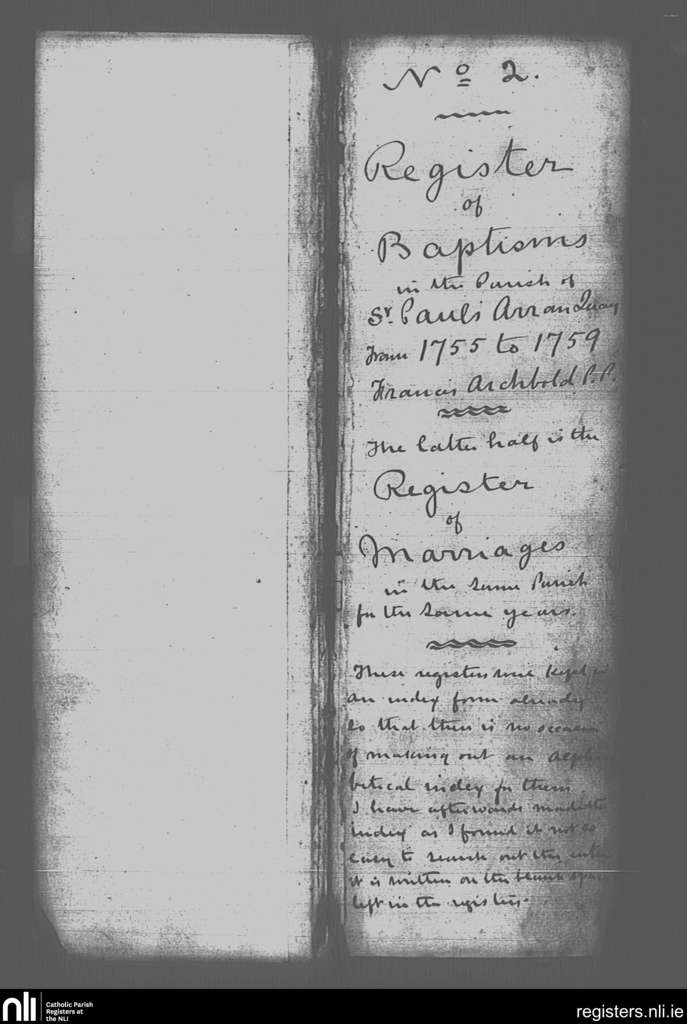 No 2.
Register
of
Baptisms
in the Parish of
St. Paul's Arran Quay
From 1755 to 1759
Francis Archbold P.P.
The latter half is the
Register
of
Marriages
in the same Parish
for the same years.
These registers were kept in
an index form already
so that there is no occasion
of making out an alpha
betical index for them
I have afterwards made the
index as I found it not so
easy to search out the
it is written on the blank space
left in the registers.
nli
Catholic Parish
Registers at
the NLI
registers.nli.ie